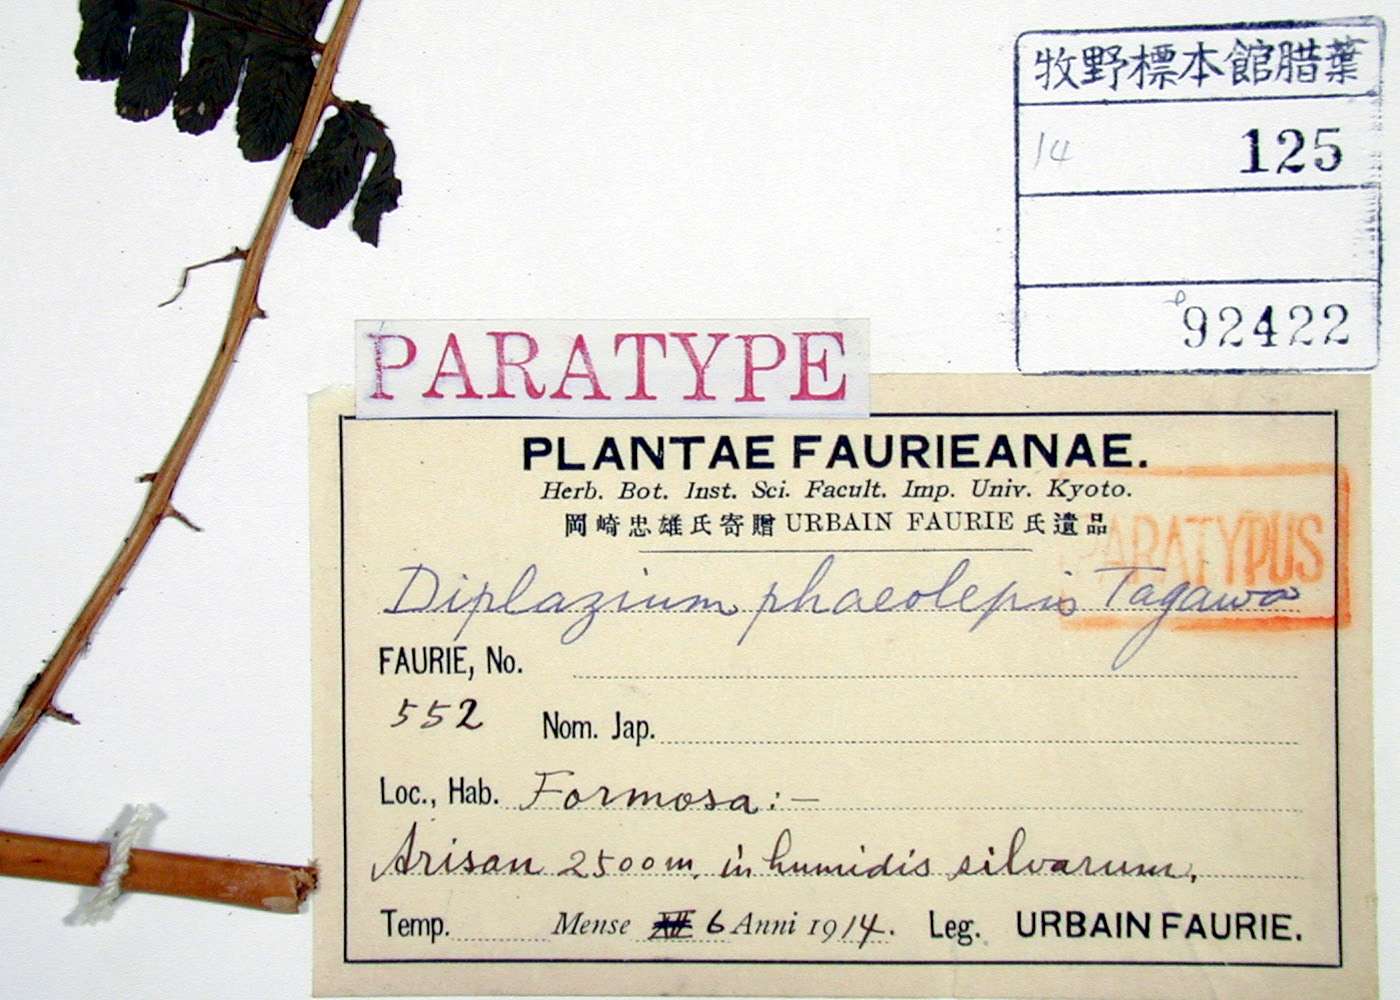 牧野標本館腊葉
14 125
92422
PARATYPE
PLANTAE FAURIEANAE.
Herb. Bot. Inst. Sci. Facult. Imp. Univ. Kyoto.
岡崎忠雄氏寄贈 URBAIN FAURIE 氏遺品
PARATYPUS
Diplazium phaeolepis Tagawa
FAURIE, No.
552 Nom. Jap.
Loc., Hab. Formosa:—
Arisan 2500m. in humidis silvarum,
Temp. Mense 6 Anni 1914. Leg. URBAIN FAURIE.